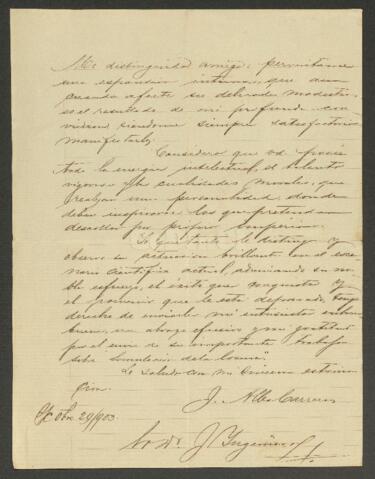 Mi distinguido amigo: permítame
una expansión íntima, que aun
cuando afecte su delicada modestia
es el resultado de mi profunda con
vicción, siéndome siempre satisfactorio
manifestarlo
Considero que vd. posée
toda la energía intelectual, el talento
vigoroso y las cualidades morales, que
realzan una personalidad, donde
deben inspirarse los que pretendan
descollar por propio
Yo que tanto le distingo y
observo su actuación brillante en el esce-
nario científico actual, admirando su no-
ble esfuerzo, el éxito que conquista y
el porvenir que le está deparado, tengo
derecho de enviarle mi entusiasta enhora
buena, un abrazo efusivo y mi gratitud
por el envío de su importante trabajo
sobre Simulación de la locura".
Lo saluda con mi sincera estima
ción.
J.
S/c 29/903
Dr. J. Ingenieros